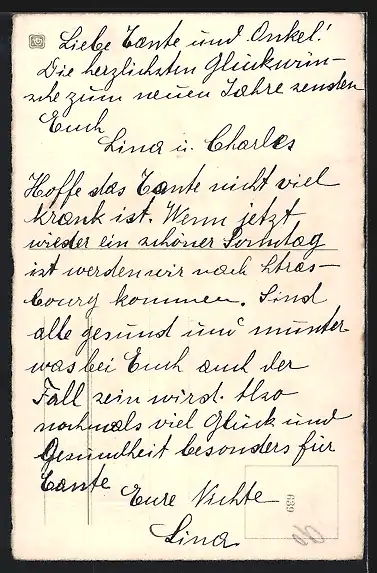 Liebe Tante und Onkel!
Die herzlichsten Glückwün-
sche zum neuen Jahre senden
Euch
Lina u. Charles
Hoffe das Tante nicht viel
krank ist. Wenn jetzt
wieder ein schöner Sonntag
ist werden wir nach Stras-
bourg kommen. Sind
alle gesund und munter
was bei Euch auch der
Fall sein wird. Also
nochmals viel Glück und
Gesundheit besonders für
Tante
Eure Nichte
Lina
639